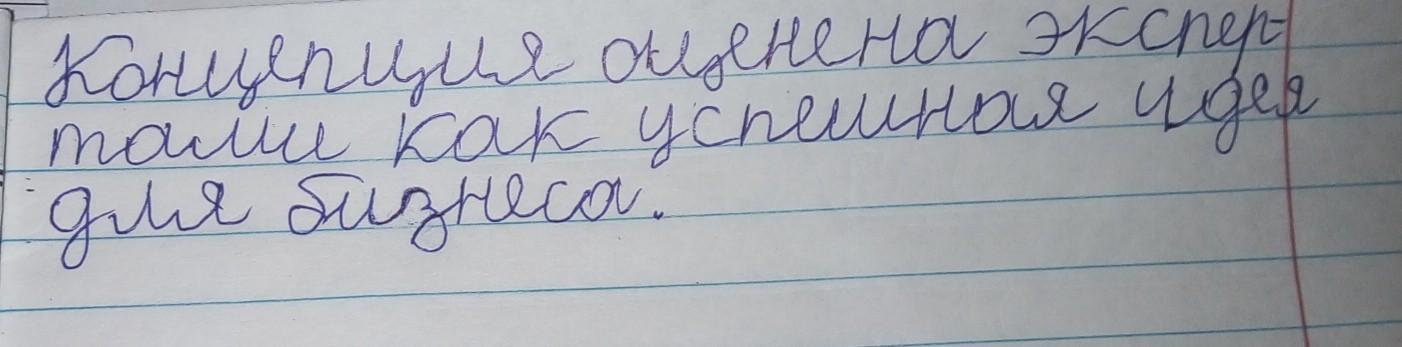 Концепция оценена экспер-
тами как успешная идея
для бизнеса.